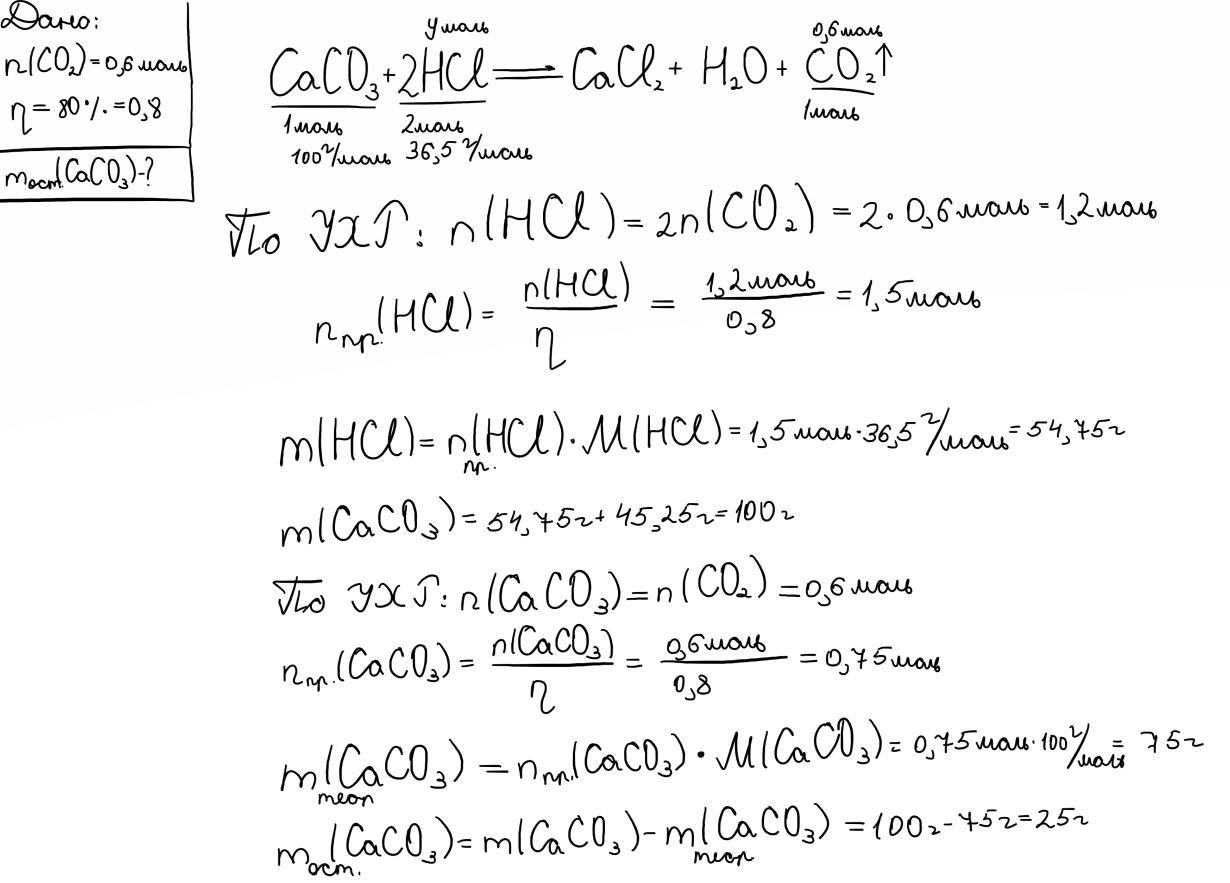 Дано:
n(CO₂)=0,6 моль
η=80%=0,8
mост.(CaCO₃)-?
y моль
0,6 моль
CaCO₃+2HCl=CaCl₂+H₂O+CO₂↑
1 моль 2 моль 1 моль
100 г/моль 36,5 г/моль
По УХР: n(HCl)=2n(CO₂)=2·0,6 моль=1,2 моль
nпр.(HCl)= n(HCl)/η = 1,2 моль/0,8 =1,5 моль
m(HCl)=nпр.(HCl)·M(HCl)=1,5 моль·36,5 г/моль=54,75г
m(CaCO₃)=54,75г+45,25г=100г
По УХР: n(CaCO₃)=n(CO₂)=0,6 моль
nпр.(CaCO₃)= n(CaCO₃)/η = 0,6 моль/0,8 =0,75 моль
mтеор(CaCO₃)=nпр.(CaCO₃)·M(CaCO₃)=0,75 моль·100 г/моль=75г
mост.(CaCO₃)=m(CaCO₃)-mтеор(CaCO₃)=100г-75г=25г